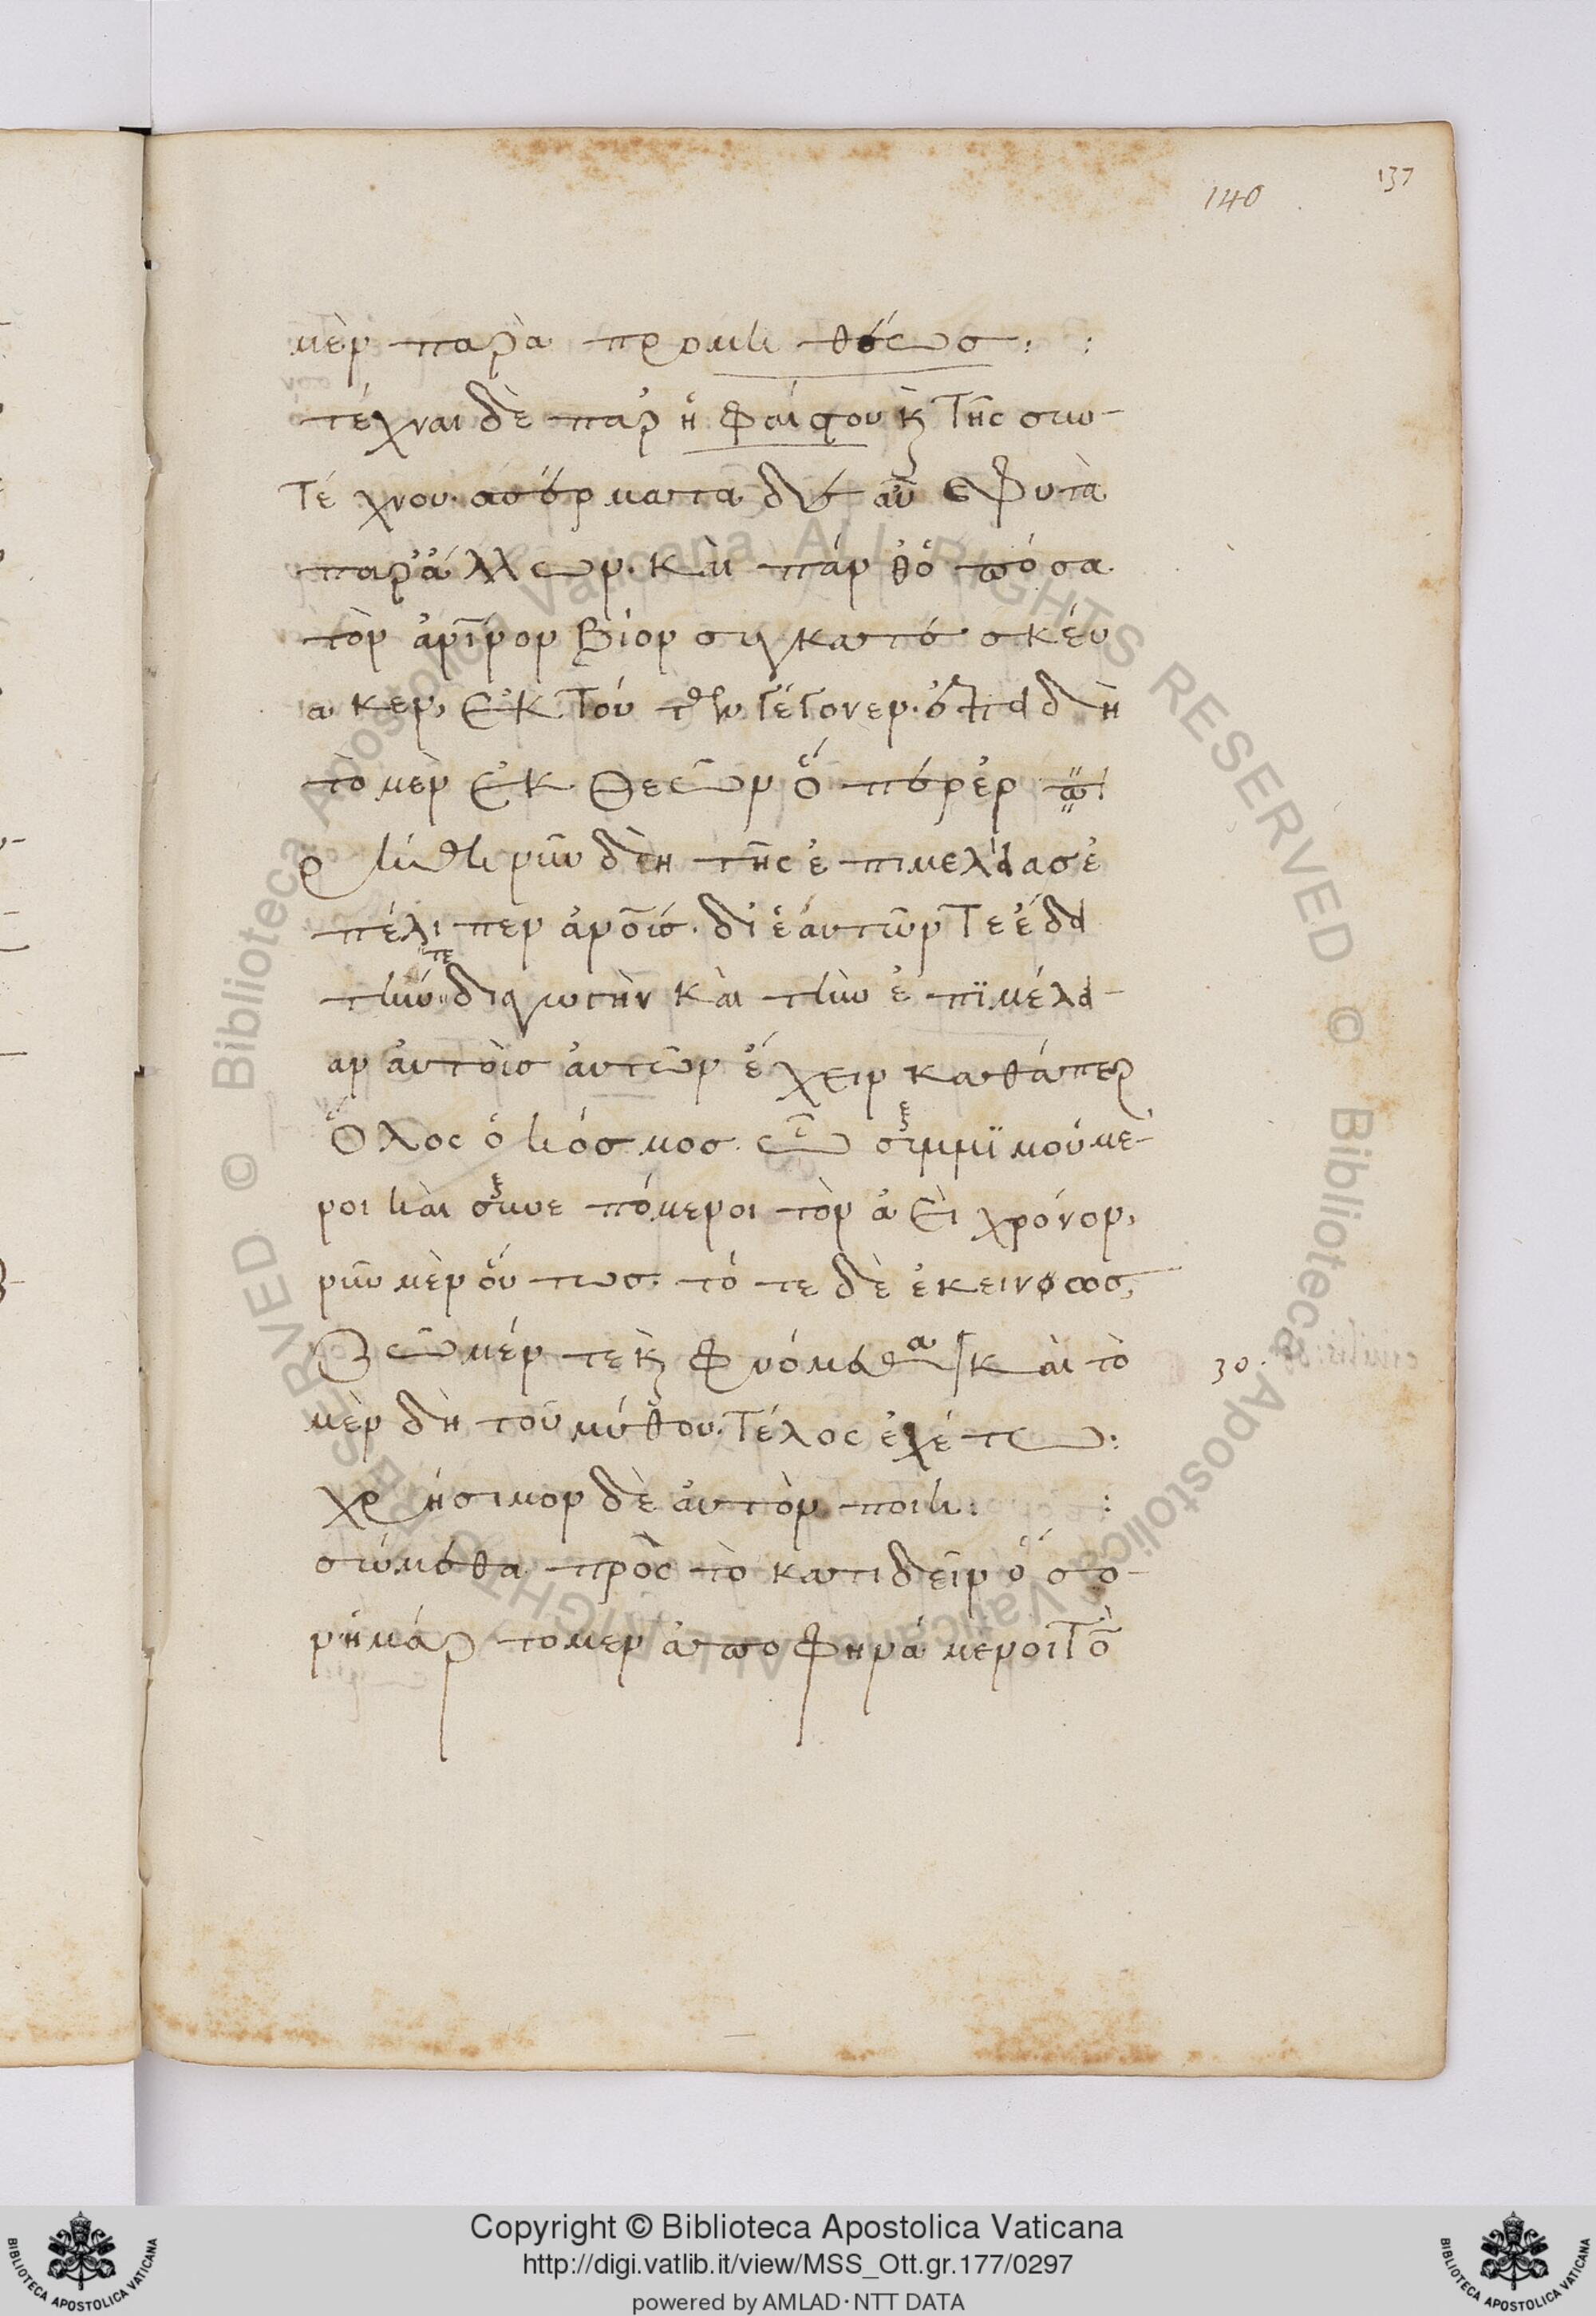 140
137
μὲν παρὰ προμηθέως:
τέχναι δὲ παρ ἡφαίστου κ τῆς συν-
τέχνου· σπέρματα δὲ αὖ ϗ φυτὰ
παρ ἄλλων· καὶ πάνθ ὁπόσα
τὸν ἀνθρώπινον βίον συγκατεσκεύ
ακεν, ἐκ τούτων γέγονεν· ἐπειδὴ
τὸ μὲν ἐκ θεῶν ὅπερ ἐρ
ρήθη νῦν δὴ τῆς ἐπιμελείας ἐ
πέλιπεν ἀνους· δι ἑαυτῶν τε ἔδει
τήν τε διαγωγὴν καὶ τὴν ἐπιμέλει-
αν αὐτοὺς αὐτῶν ἔχειν καθάπερ
ὅλος ὁ κόσμος· ᾧ συμμιμούμε-
νοι καὶ συνεπόμενοι τὸν ἀεὶ χρόνον,
νῦν μὲν οὕτως· τότε δὲ ἐκείνως,
ζῶμέν τε κ φυόμεθα καὶ τὸ
30.
μὲν δὴ τοῦ μύθου τέλος ἐχέτω:
χρήσιμον δὲ αὐτὸν ποιη:
σώμεθα πρὸς τὸ κατιδεῖν ὅσο-
ν ἡμάρτομεν ἀποφηνάμενοι τὸ
Copyright © Biblioteca Apostolica Vaticana
http://digi.vatlib.it/view/MSS_Ott.gr.177/0297
powered by AMLAD·NTT DATA
BIBLIOTECA APOSTOLICA VATICANA
BIBLIOTECA APOSTOLICA VATICANA
© Biblioteca Apostolica Vaticana ALL RIGHTS RESERVED © Biblioteca Apostolica Vaticana ALL RIGHTS RESERVED